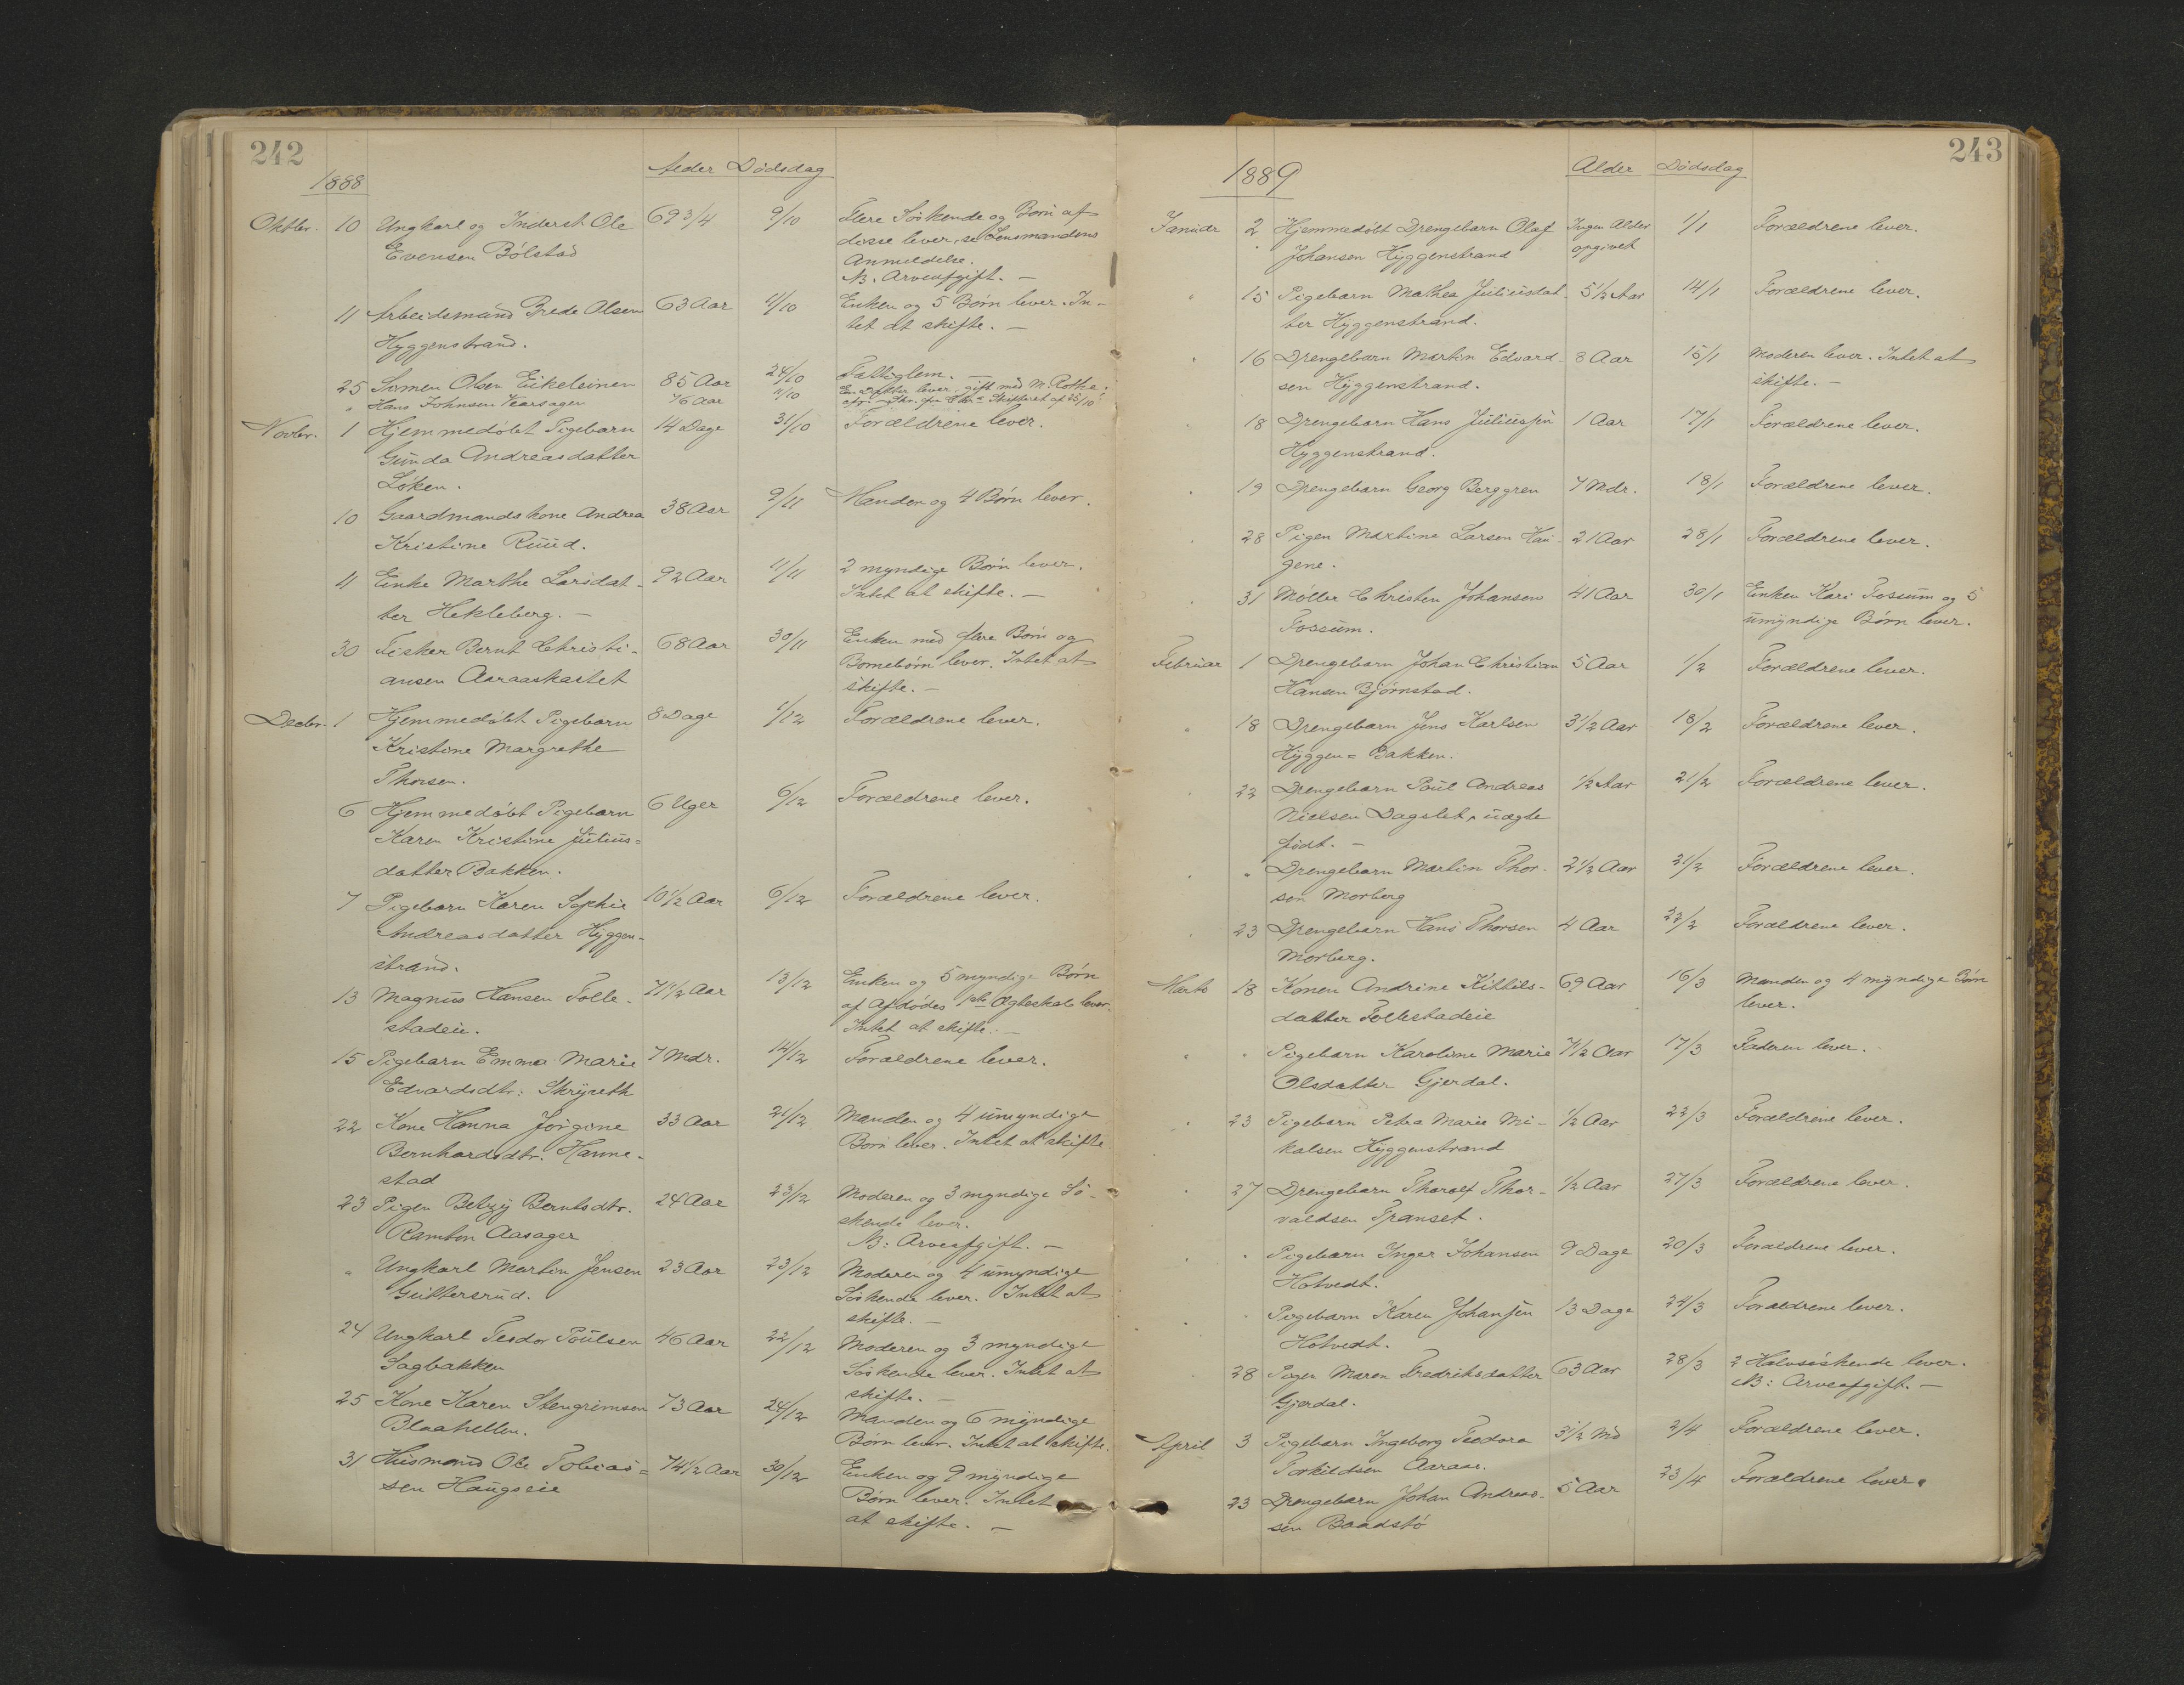 242
1888 Alder Dødsdag
Oktbr. 10 Ungkarl og Inderst Ole 69 3/4 9/10 Flere Søskende og Børn af
Evensen Bölstad disse lever, se Lensmandens
Anmeldelse.
NB. Arveafgift. —
11 Arbeidsmand Brede Olsen 63 Aar 11/10 Enken og 5 Børn lever. In-
Hyggenstrand. tet at skifte. —
25 Simen Olsen Eikeleinen 85 Aar 24/10 Fattiglem. —
" Hans Johnsen 76 Aar 11/10 En Datter lever, gift med M. Rothe.
Skifteret af 25/10
Novbr. 1 Hjemmedøbt Pigebarn 14 Dage 31/10 Forældrene lever.
Gunda Andreasdatter
Løken.
10 Gaardmandskone Andrea 38 Aar 9/11 Manden og 4 Børn lever.
Kristine Ruud.
11 Enke Marthe Larsdat- 92 Aar 11/11 2 myndige Børn lever.
ter Hekleberg. — Intet at skifte. —
30 Fisker Bernt Christi- 68 Aar 30/11 Enken med flere Børn og
ansen Aaraaskastet Børnebørn lever. Intet at
skifte. —
Decbr. 1 Hjemmedøbt Pigebarn 8 Dage 1/12 Forældrene lever.
Kristine Margrethe
Thorsen.
6 Hjemmedøbt Pigebarn 6 Uger 6/12 Forældrene lever.
Karen Kristine Julius-
datter Bakken.
7 Pigebarn Karen Sophie 10 1/2 Aar 6/12 Forældrene lever.
Andreasdatter Hyggen-
strand.
13 Magnus Hansen Folle- 71 1/2 Aar 13/12 Enken og 5 myndige Børn
stadeie. af Afdødes 1ste Ægteskab lever.
Intet at skifte. —
15 Pigebarn Emma Marie 7 Mdr. 14/12 Forældrene lever.
Edvardsdtr. Skryseth
22 Kone Hanna Jørgine 33 Aar 21/12 Manden og 4 umyndige
Bernhardsdtr. Hanne- Børn lever. Intet at skifte
stad
23 Pigen Betzy Berntsdtr. 24 Aar 23/12 Moderen og 3 myndige Sø-
Ramton Aasager skende lever.
NB: Arveafgift. —
" Ungkarl Martin Jensen 23 Aar 23/12 Moderen og 4 umyndige
Guttersrud. Søskende lever. Intet at
skifte. —
24 Ungkarl Teodor Poulsen 46 Aar 22/12 Moderen og 3 myndige
Sagbakken Søskende lever. Intet at
skifte. —
25 Kone Karen Stengrimsen 73 Aar 24/12 Manden og 6 myndige
Blaahellen. Børn lever. Intet at skifte.
31 Husmand Ole Tobias- 74 1/2 Aar 30/12 Enken og 9 myndige
sen Haugseie Børn lever. Intet
at skifte. —
243
1889 Alder Dødsdag
Januar 2 Hjemmedøbt Drengebarn Olaf Ingen Alder 1/1 Forældrene lever.
Johansen Hyggenstrand opgivet
" 15 Pigebarn Mathea Juliusdat- 5 1/2 Aar 14/1 Forældrene lever.
ter Hyggenstrand.
" 16 Drengebarn Martin Edvard- 8 Aar 15/1 Moderen lever. Intet at
sen Hyggenstrand. skifte. —
" 18 Drengebarn Hans Juliussen 1 Aar 17/1 Forældrene lever.
Hyggenstrand.
" 19 Drengebarn Georg Berggren 7 Mdr. 18/1 Forældrene lever.
" 28 Pigen Martine Larsen Hau- 21 Aar 28/1 Forældrene lever.
gene.
" 31 Møller Christen Johansen 41 Aar 30/1 Enken Kari Fossum og 5
Fossum. umyndige Børn lever.
Februar 1 Drengebarn Johan Christian 5 Aar 1/2 Forældrene lever.
Hansen Bjørnstad.
" 18 Drengebarn Jens Karlsen 3 1/2 Aar 18/2 Forældrene lever.
Hyggen=Bakken.
" 22 Drengebarn Poul Andreas 1/2 Aar 21/2 Forældrene lever.
Nielsen Dagslet, uægte
født. —
" " Drengebarn Martin Thor- 2 1/2 Aar 21/2 Forældrene lever.
sen Morberg
" 23 Drengebarn Hans Thorsen 4 Aar 22/2 Forældrene lever.
Morberg.
Marts 18 Konen Andrine Kittils- 69 Aar 16/3 Manden og 4 myndige Børn
datter Follestadeie lever.
" " Pigebarn Karoline Marie 7 1/2 Aar 17/3 Faderen lever.
Olsdatter Gjerdal.
" 23 Pigebarn Petra Marie Mi- 1/2 Aar 22/3 Forældrene lever.
kalsen Hyggenstrand
" 27 Drengebarn Tharalf Thor- 1/2 Aar 27/3 Forældrene lever.
valdsen Transet.
" " Pigebarn Inger Johansen 9 Dage 20/3 Forældrene lever.
Hotvedt.
" " Pigebarn Karen Johansen 13 Dage 24/3 Forældrene lever.
Hotvedt.
" 28 Pigen Maren Fredriksdatter 63 Aar 28/3 2 Halvsøskende lever.
Gjerdal. NB: Arveafgift. —
April 3 Pigebarn Ingeborg Teodora 3 1/2 Md 2/4 Forældrene lever.
Torkildsen Aaraas.
23 Drengebarn Johan Andreas- 5 Aar 23/4 Forældrene lever.
sen Baadstø